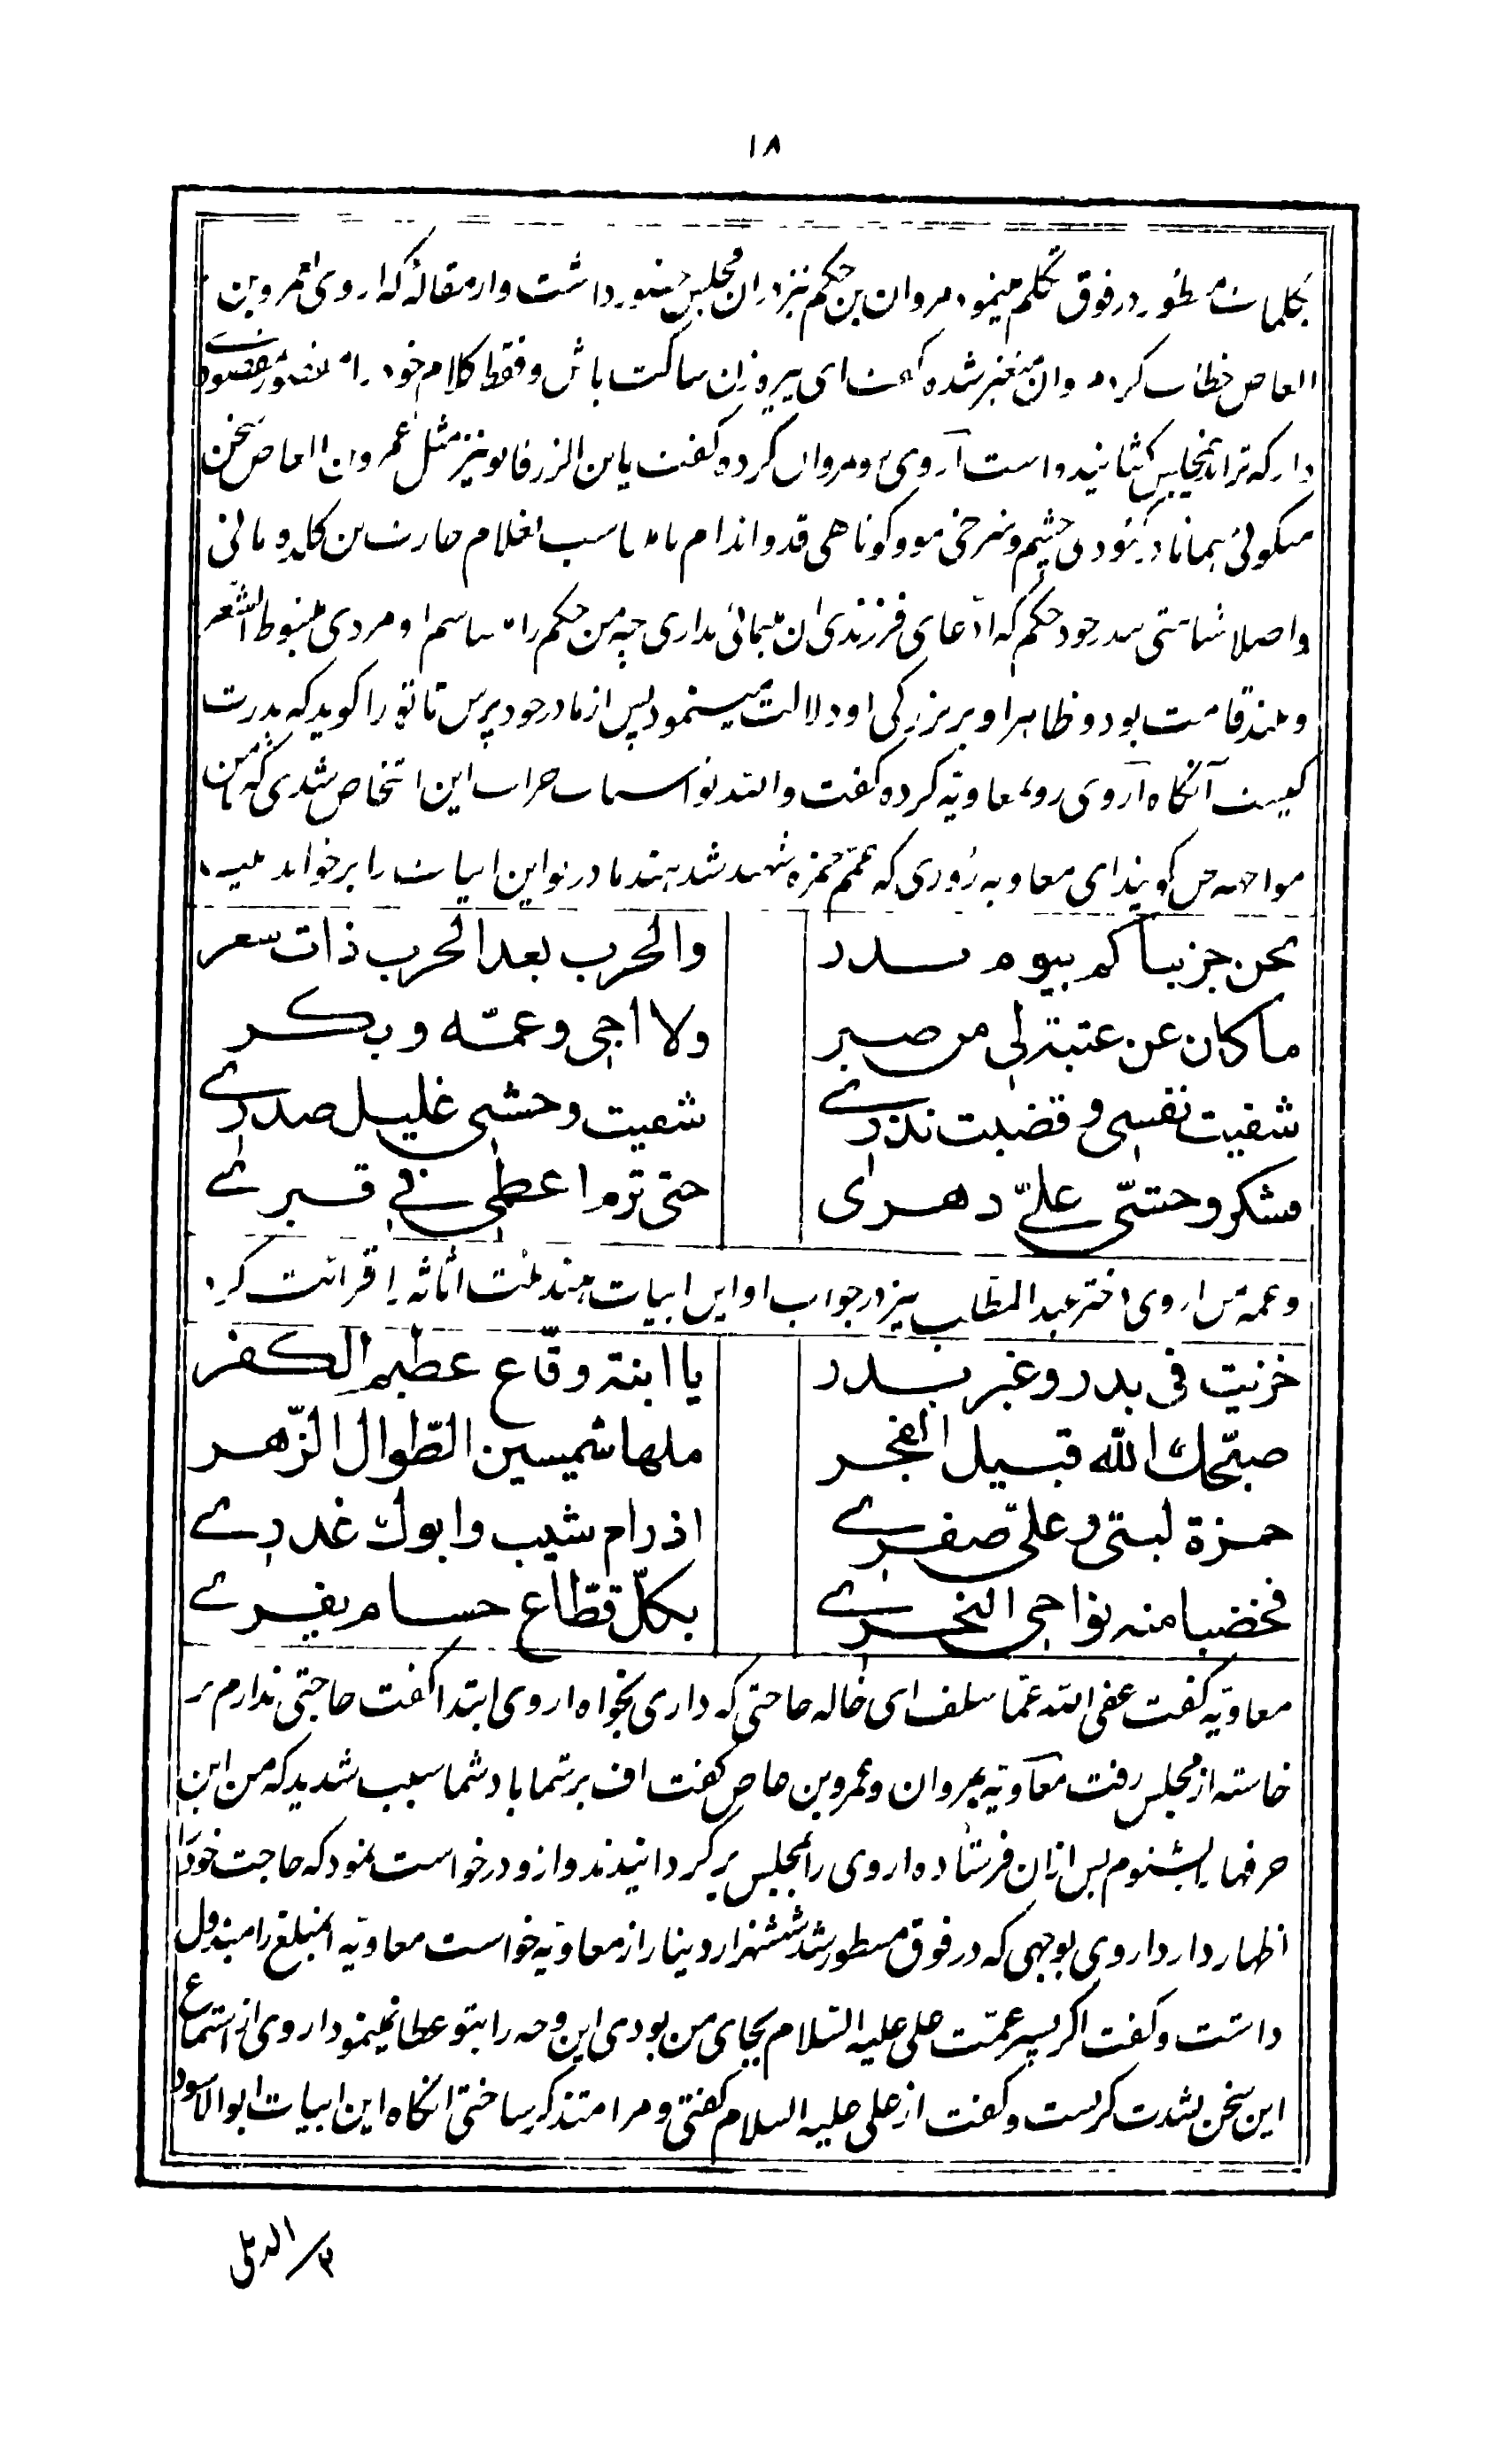 ۱۸
بکلمات مسطور در فوق تکلم مینمود مروان بن حکم نیز در ان مجلس حضور داشت و از مقالهٔ که اروی بعمرو بن
العاص خطاب کرد مروان متغیر شده گفت ای پیره زن ساکت باش و فقط کلام خود را مقصود
دار که ترا بدینمجلس کشانیده است آروی رو بمروان کرده گفت یابن الزرقا تو نیز مثل عمرو بن العاص سخن
میگوئی همانا در کبودی چشم و سرخی مو و کوتاهی قد و اندام بغلام حارث بن کلده مانی
و اصلا شباهتی بپدر خود حکم که ادعای فرزندی ان مینمائی نداری چه من حکم را می شناسم او مردی مبسوط الشعر
و بلند قامت بود و ظاهر او بر بزرگی او دلالت مینمود پس از مادر خود بپرس تا تو را گوید که پدرت
کیست آنگاه آروی رو بمعاویه کرده گفت والله تو اسباب جرات این اشخاص شدی که با من
مواجهه گویند ای معاویه روزی که عمم حمزه شهید شد هند مادر تو این ابیات را برخواند
نحن جزیناکم بیوم بدر
والحرب بعد الحرب ذات سعر
ما کان عن عتبة لی من صبر
ولا اخی و عمّه و بکر
شفیت نفسی و قضیت نذری
شفیت وحشی غلیل صدری
فشکر وحشیّ علیّ دهری
حتی ترم اعظمی فی قبری
و عمه من اروی دختر عبد المطلب نیز در جواب او این ابیات هند بنت اثاثه را قرائت کرد
خزیت فی بدر و غیر بدر
یا ابنة وقّاع عظیم الکفر
صبّحک الله قبیل الفجر
ملهاشمیین الطّوال الزّهر
حمزة لیثی و علیّ صقری
اذ رام شیب و ابوک غدری
فخضبا منه نواحی النحری
بکلّ قطّاع حسام یفری
معاویه گفت عفی الله عمّا سلف ای خاله حاجتی که داری بخواه اروی ابتدا گفت حاجتی ندارم بر
خاسته از مجلس رفت معاویه بمروان و عمرو بن عاص گفت اف بر شما باد شما سبب شدید که من این
حرفها بشنوم پس از ان فرستاده اروی را بمجلس برگردانیدند و از و درخواست نمود که حاجت خود را
اظهار دارد اروی بوجهی که در فوق مسطور شد ششهزار دینار از معاویه خواست معاویه انمبلغ را مبذول
داشت و گفت اگر پسر عمّت علی علیه السّلام بجای من بودی این وجه را بتو عطا نمینمود اروی از استماع
این سخن بشدت گریست و گفت از علی علیه السلام گفتی و مرا متذکر ساختی انگاه این ابیات ابو الاسود